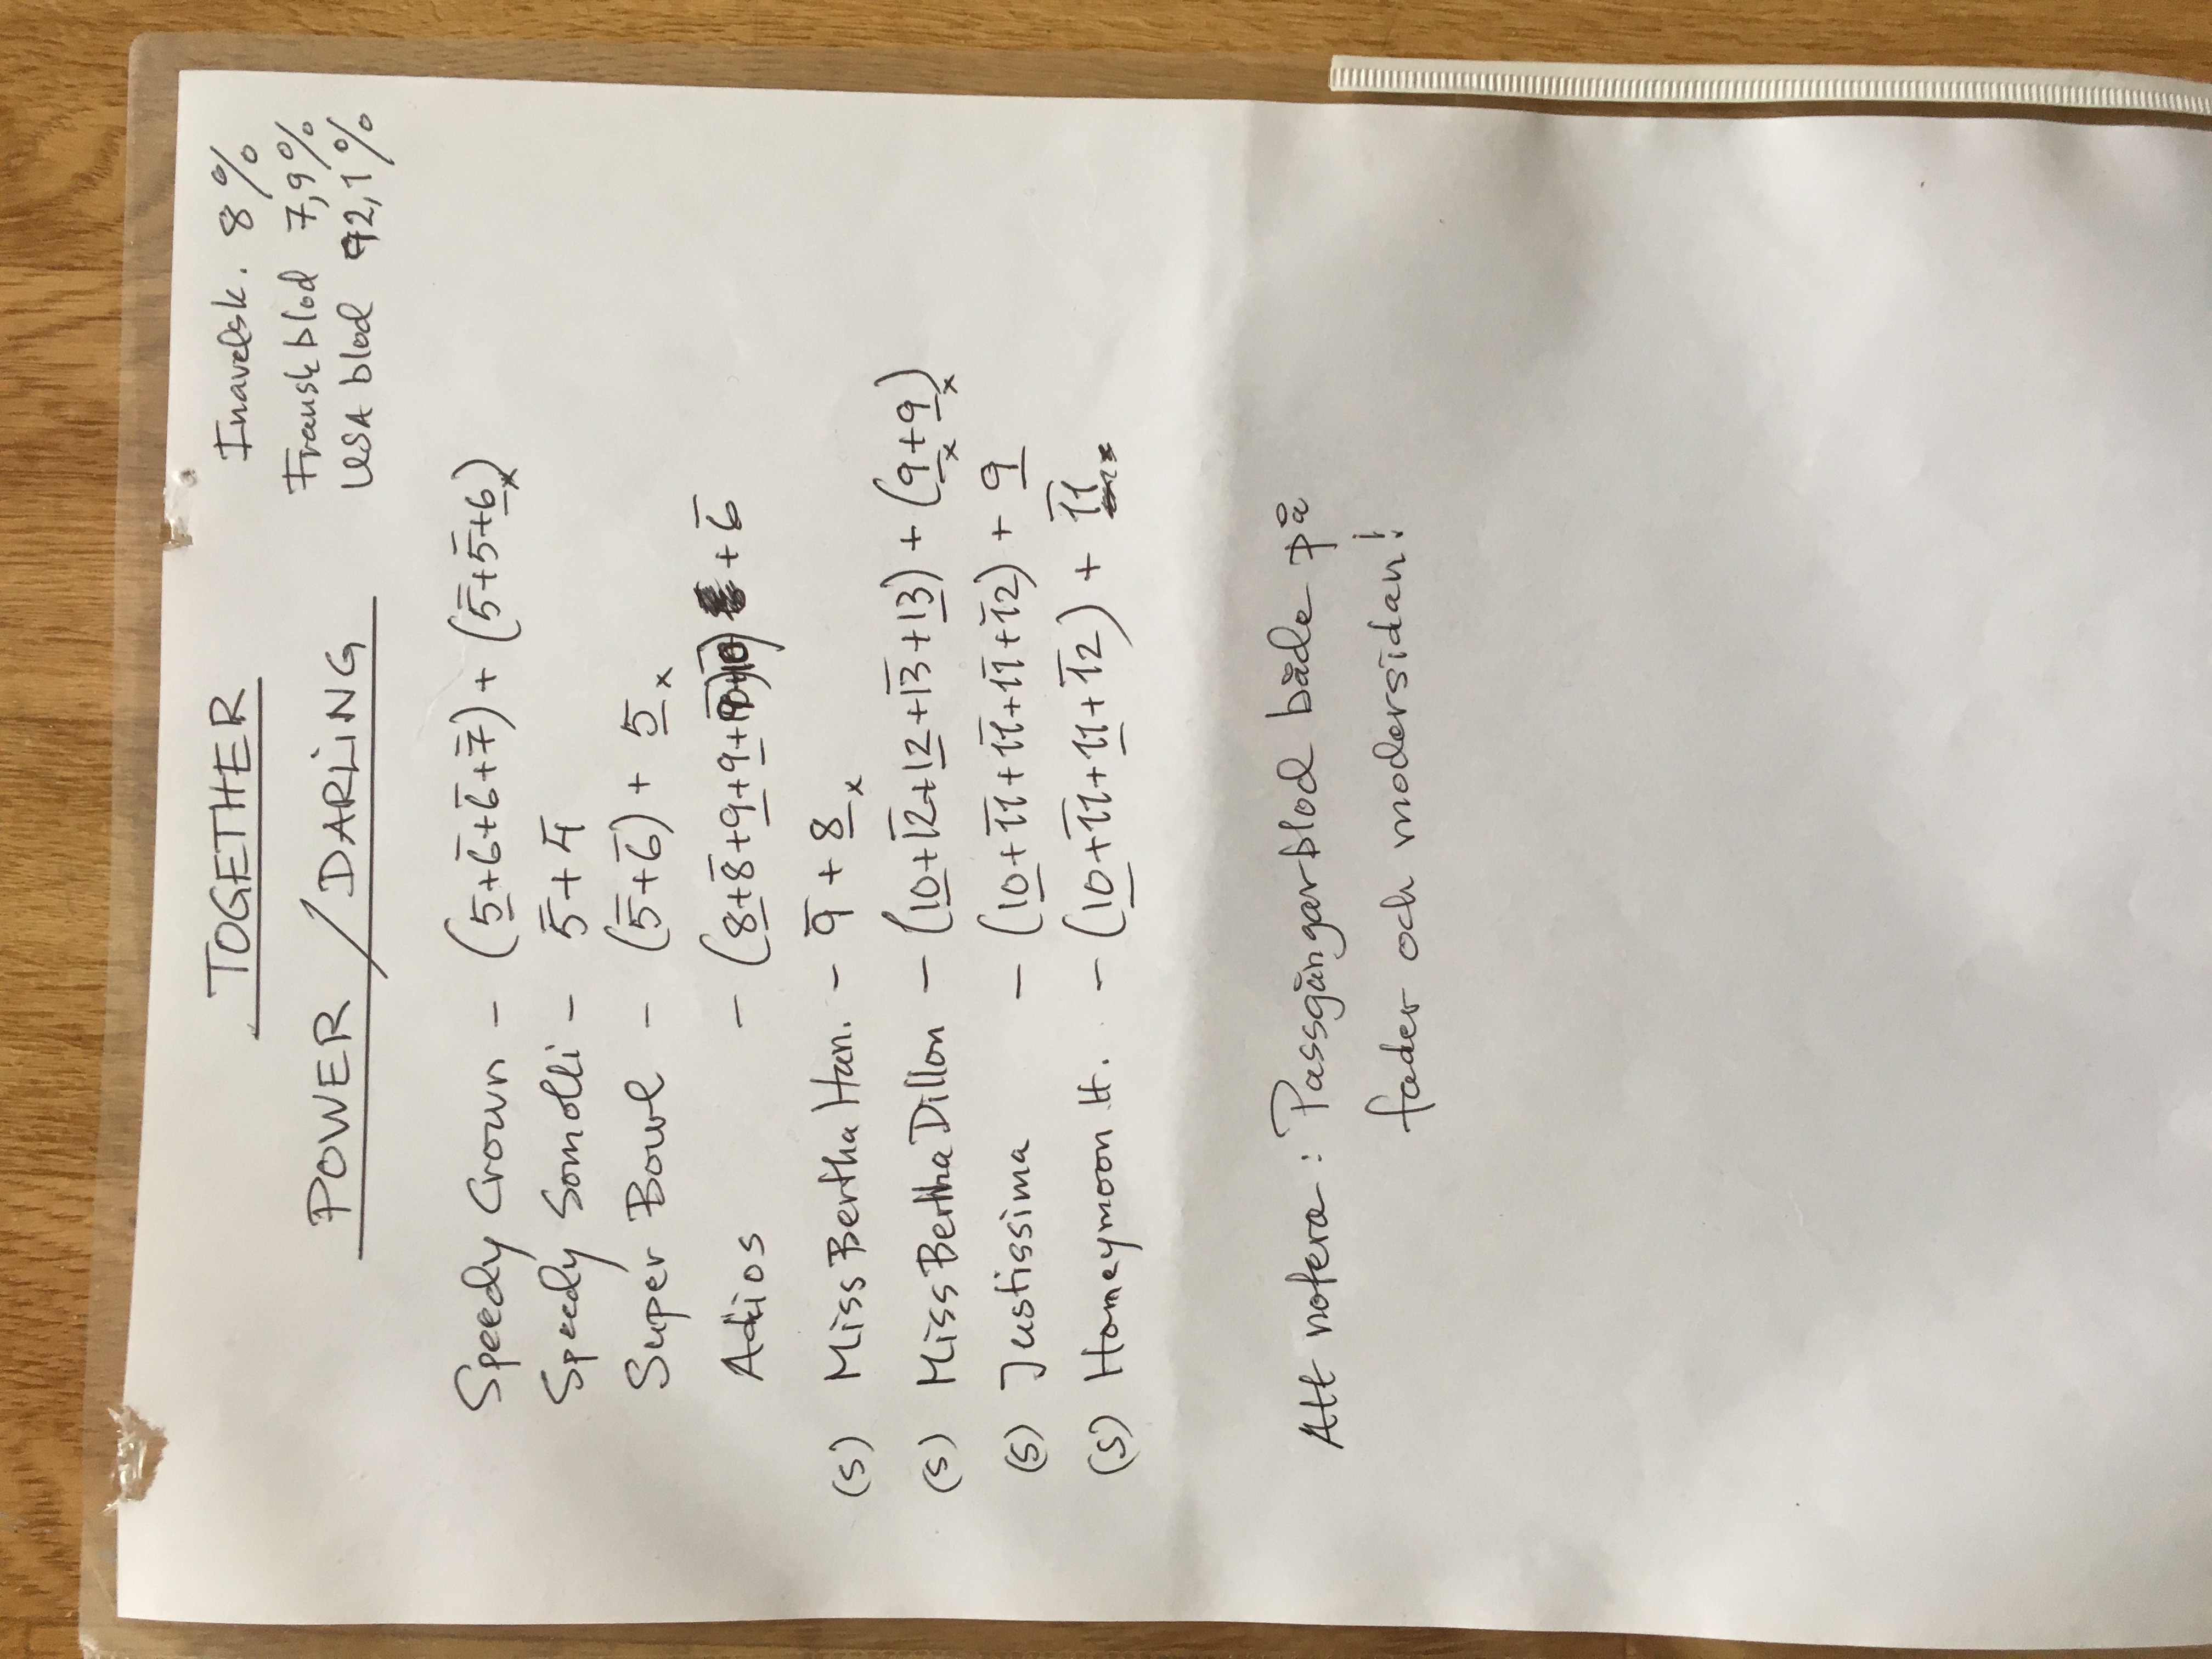 TOGETHER
POWER / DARLING
Inavelsk. 8%
Fransk blod 7,9%
USA blod 92,1%
Speedy Crown - (5̲+6̅+6̅+7̅) + (5̅+5̅+6̲x)
Speedy Somolli - 5̅+4̅
Super Bowl - (5̅+6̅) + 5̲x
Adios - (8̲+8̅+9̲+9̲+10) +6̅
(s) Miss Bertha Han. - 9̅+8̲x
(s) Miss Bertha Dillon - (10̲+12̅+12̲+13̅+13̲) + (9̲x+9̲x)
(s) Justissima - (10̲+11̅+11̅+11̅+12̅) + 9̲
(s) Honeymoon H. - (10̲+11̅+11̲+12̅) + 11̅
Att notera: Passgångarblod både på
fader och modersidan!